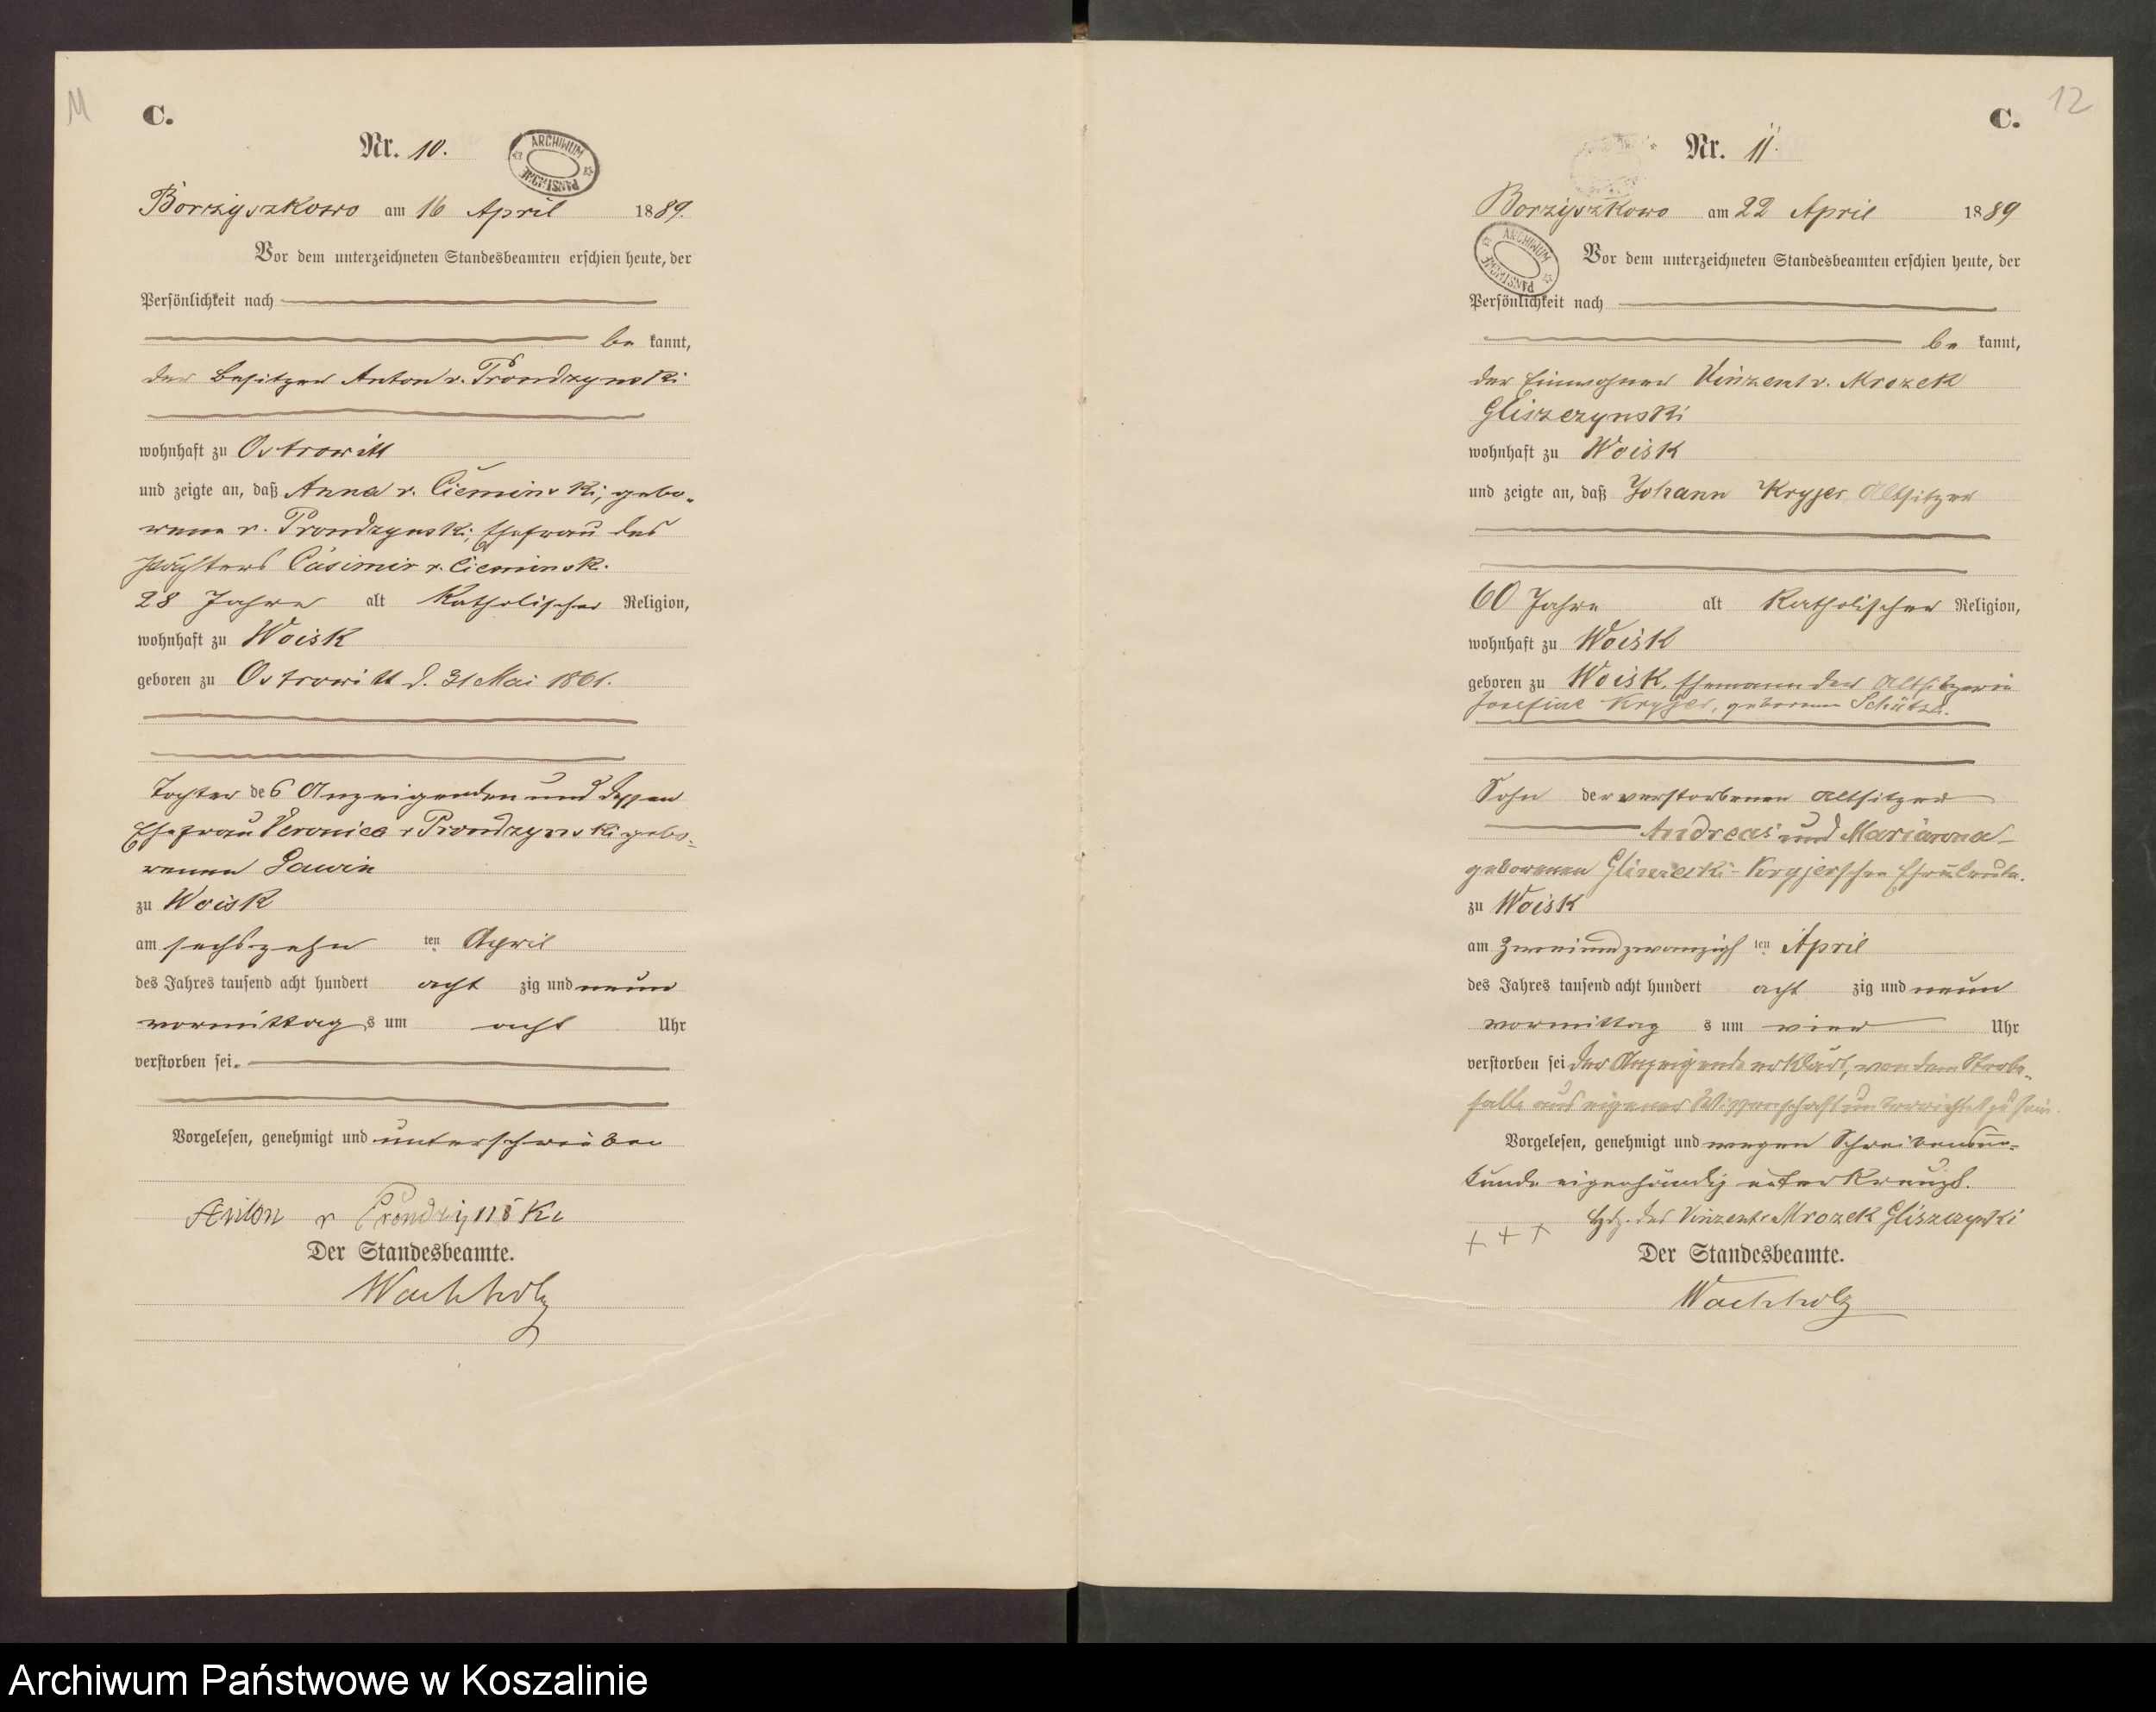 11
C.
Nr. 10.
ARCHIWUM PAŃSTWOWE
Borzyszkowo am 16 April 1889.
Vor dem unterzeichneten Standesbeamten erschien heute, der
Persönlichkeit nach
be kannt,
der Besitzer Anton v. Prondzynski
wohnhaft zu Ostrowitt
und zeigte an, daß Anna v. Cieminski, gebo-
rene v. Prondzynski, Ehefrau des
Pächters Casimir v. Cieminski.
28 Jahre alt Katholischer Religion,
wohnhaft zu Woisk
geboren zu Ostrowitt d. 31 Mai 1861.
Tochter des Anzeigenden und dessen
Ehefrau Veronica v Prondzynski gebo-
renen
zu Woisk
am sechszehn ten April
des Jahres tausend acht hundert acht zig und neun
vormittag s um acht Uhr
verstorben sei.
Vorgelesen, genehmigt und unterschrieben
Anton v Prondzynski
Der Standesbeamte.
Wachholz
12
C.
Nr. 11.
Borzyszkowo am 22 April 1889
ARCHIWUM PAŃSTWOWE
Vor dem unterzeichneten Standesbeamten erschien heute, der
Persönlichkeit nach
be kannt,
der Einwohner Vinzent v. Mrozek
Gliszczynski
wohnhaft zu Woisk
und zeigte an, daß Johann Kryjer, Altsitzer
60 Jahre alt Katholischer Religion,
wohnhaft zu Woisk
geboren zu Woisk, Ehemann der Altsitzerin
Josefine Kryjer, geborenen Schütza.
Sohn der verstorbenen Altsitzer
Andreas und Marianna
geborenen Kryjerschen Eheleute.
zu Woisk
am zweiundzwanzigs ten April
des Jahres tausend acht hundert acht zig und neun
vormittag s um vier Uhr
verstorben sei der Anzeigende erklärt, von dem Sterbe-
falle aus eigener Wissenschaft unterrichtet zu sein.
Vorgelesen, genehmigt und wegen Schreibensun-
kunde eigenhändig unterkreuzt.
+ + + Hdz. des Vinzent v Mrozek Gliszczynski
Der Standesbeamte.
Wachholz
Archiwum Państwowe w Koszalinie